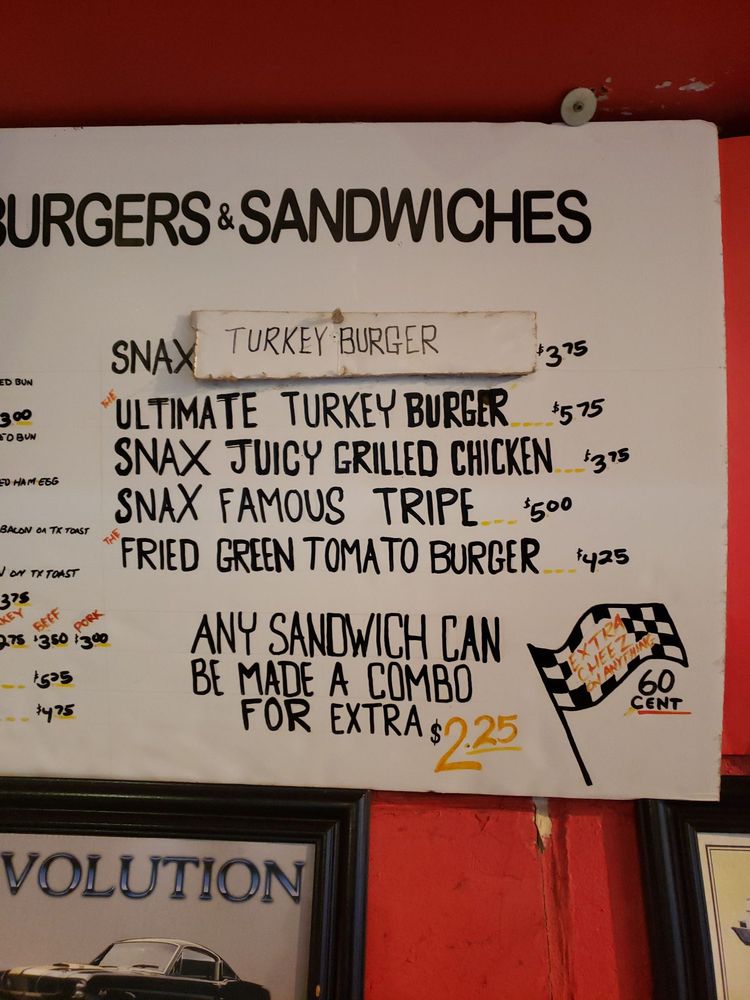 BURGERS & SANDWICHES
SNAX TURKEY BURGER $3.75
THE ULTIMATE TURKEY BURGER.... $5.75
SNAX JUICY GRILLED CHICKEN... $3.75
SNAX FAMOUS TRIPE... $5.00
THE FRIED GREEN TOMATO BURGER... $4.25
ANY SANDWICH CAN
BE MADE A COMBO
FOR EXTRA $2.25
EXTRA
CHEEZ
ON ANYTHING
60
CENT
ED BUN
3.00
BUN
ED HAM EGG
BACON ON TX TOAST
ON TX TOAST
3.75
KEY BEEF PORK
2.75 $3.50 $3.00
$5.25
$4.75
VOLUTION